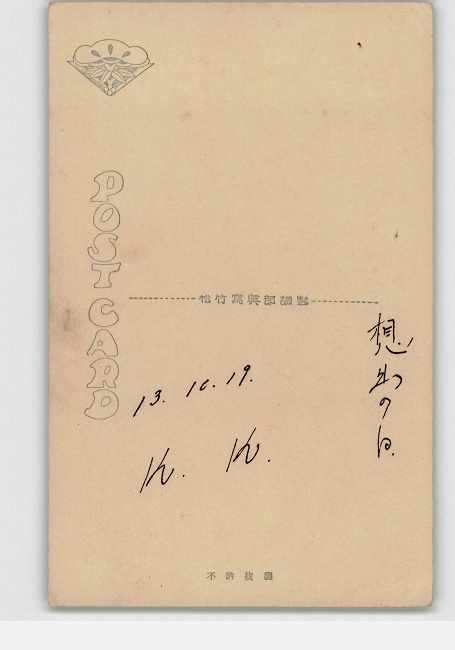 POST CARD
松竹寫眞部調製
想出の日.
13. 10. 19.
K. K.
不許複製